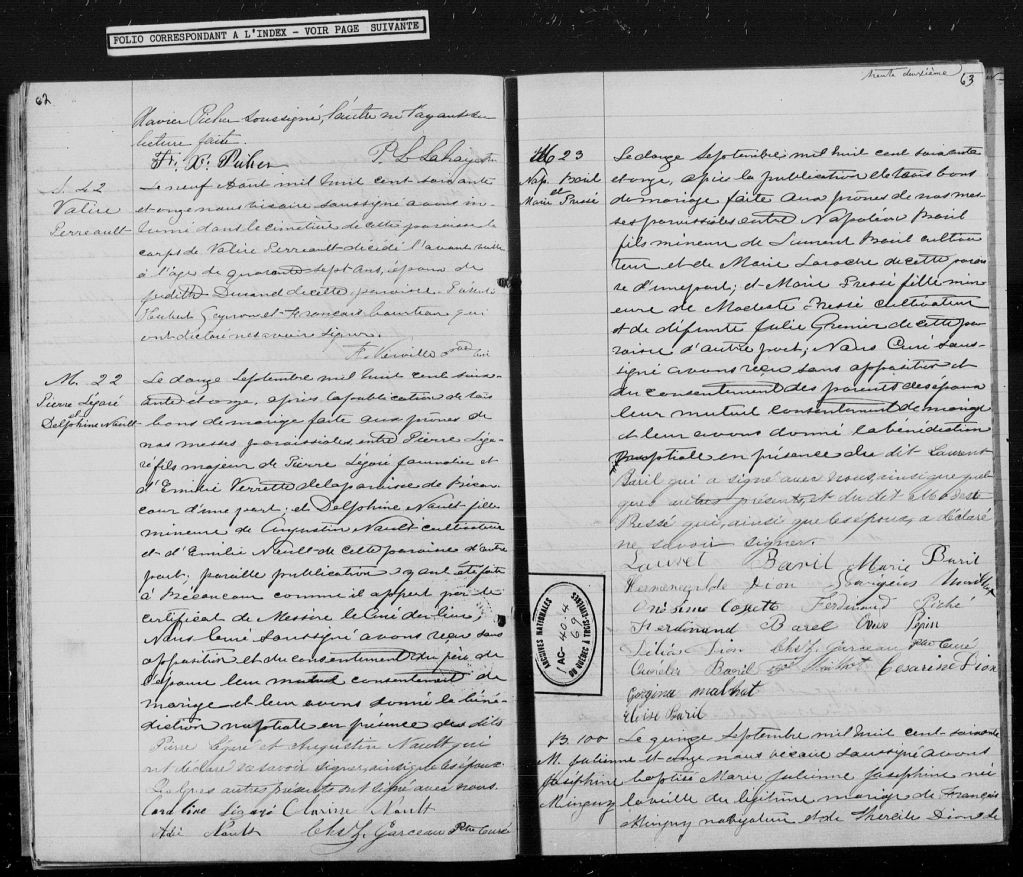 FOLIO CORRESPONDANT A L'INDEX - VOIR PAGE SUIVANTE
62
Xavier Picher soussigné, l'autre ne l'ayant su
lecture faite.
Fr. Xr. Picher P. L. Lahaye
S. 42
Valère
Perreault
Le neuf Août mil huit cent soixante
et onze nous vicaire soussigné avons in-
humé dans le cimetière de cette paroisse le
corps de Valère Perreault décédé l'avant veille
à l'âge de quarante sept ans, époux de
Judith Durand de cette paroisse. Présents
Hubert et François qui
ont déclaré ne savoir signer.
F. Verville
M. 22
Pierre Légaré
et
Delphine Nault
Le douze Septembre mil huit cent soix-
ante et onze, après la publication de trois
bans de mariage faite aux prônes de
nos messes paroissiales entre Pierre Léga-
ré fils majeur de Pierre Légaré journalier et
d'Emilie Verrette de la paroisse de Bécan-
cour d'une part; et Delphine Nault fille
mineure de Augustin Nault cultivateur
et d'Emilie Nault de cette paroisse d'autre
part; pareille publication ayant été faite
à Bécancour comme il appert par le
certificat de Messire le Curé du lieu;
Nous Curé soussigné avons reçu sans
opposition et du consentement du père de
l'épouse leur mutuel consentement de
mariage et leur avons donné la béné-
diction nuptiale en présence des dits
Pierre Légaré et Augustin Nault qui
ont déclaré ne savoir signer, ainsi que les époux.
Quelques autres présents ont signé avec nous.
Caroline Légaré Clarisse Nault
Adé Nault Chs Z. Garceau Ptre Curé
trente deuxième 63
M 23
Nap. Baril
et
Marie Pressé
Le douze Septembre mil huit cent soixante
et onze, après la publication de trois bans
de mariage faite aux prônes de nos mes-
ses paroissiales entre Napoléon Baril
fils mineur de Laurent Baril cultiva-
teur et de Marie Laroche de cette parois-
se d'une part; et Marie Pressé fille min-
eure de Modeste Pressé cultivateur
et de défunte Julie Grenier de cette pa-
roisse d'autre part; Nous Curé sous-
signé avons reçu sans opposition et
du consentement des parents des époux
leur mutuel consentement de mariage
et leur avons donné la bénédiction
nuptiale en présence du dit Laurent
Baril qui a signé avec nous ainsi que quel-
ques autres présents, et du dit Modeste
Pressé qui, ainsi que les époux, a déclaré
ne savoir signer.
Lauret Baril Marie Baril
Hermenegilde Dion Georgina
Onésime Ferdinand Piché
Ferdinand Barel
Délia Dion Chs Z. Garceau Ptre Curé
Aurélie Baril Césarise Dion
Gorgina malhot
Eloise Baril
ARCHIVES NATIONALES
AG-40-4
69
DU QUÉBEC À TROIS-RIVIÈRES
B. 100
M. Julienne
Joséphine
Minguy
Le quinze Septembre mil huit cent soixante
et onze nous vicaire soussigné avons
baptisé Marie Julienne Joséphine née
la veille du légitime mariage de François
Minguy navigateur et de Thercile Dione de